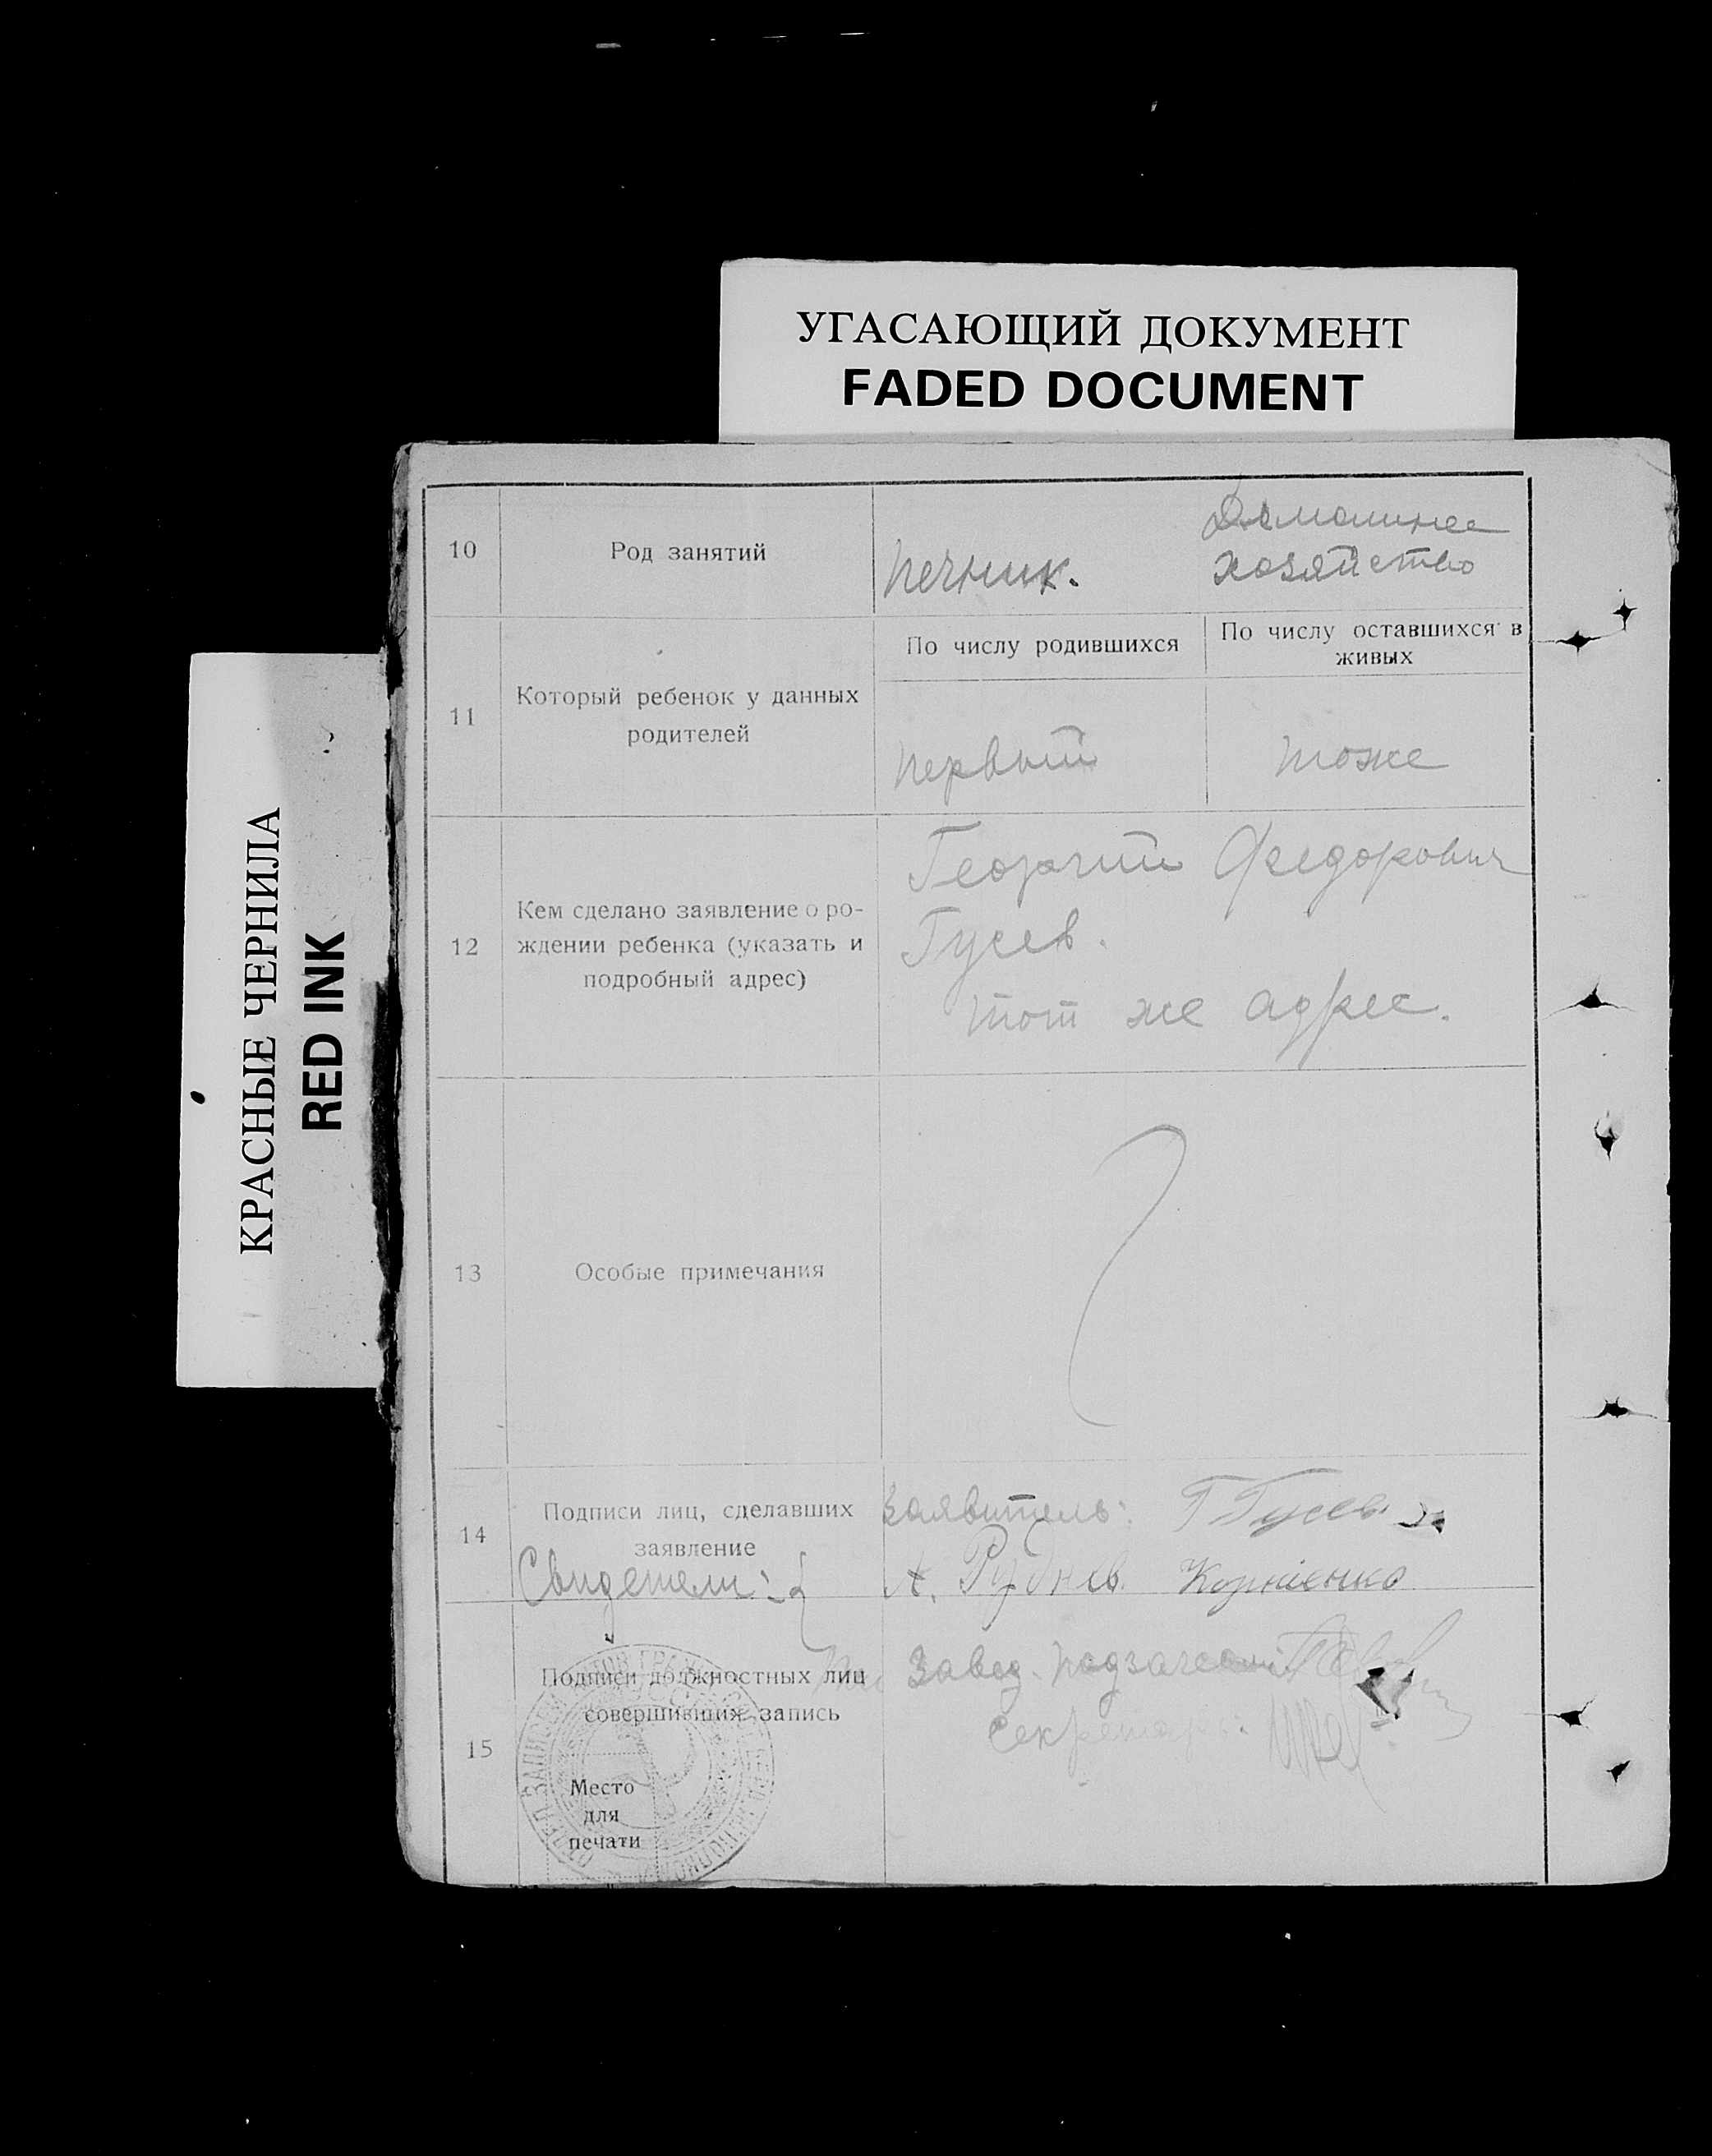 УГАСАЮЩИЙ ДОКУМЕНТ
FADED DOCUMENT
КРАСНЫЕ ЧЕРНИЛА
RED INK
10
Род занятий
печник.
Домашнее
хозяйство
11
Который ребенок у данных
родителей
По числу родившихся
По числу оставшихся в
живых
первый
тоже
12
Кем сделано заявление о ро-
ждении ребенка (указать и
подробный адрес)
Георгий Федорович
Гусев.
тот же адрес.
13
Особые примечания
14
Подписи лиц, сделавших
заявление
Свидетели:
Заявитель: Г Гусев
А. Руднев. Корниенко
15
Подписи должностных лиц
совершивших запись
Место
для
печати
Завед.
Секретарь: